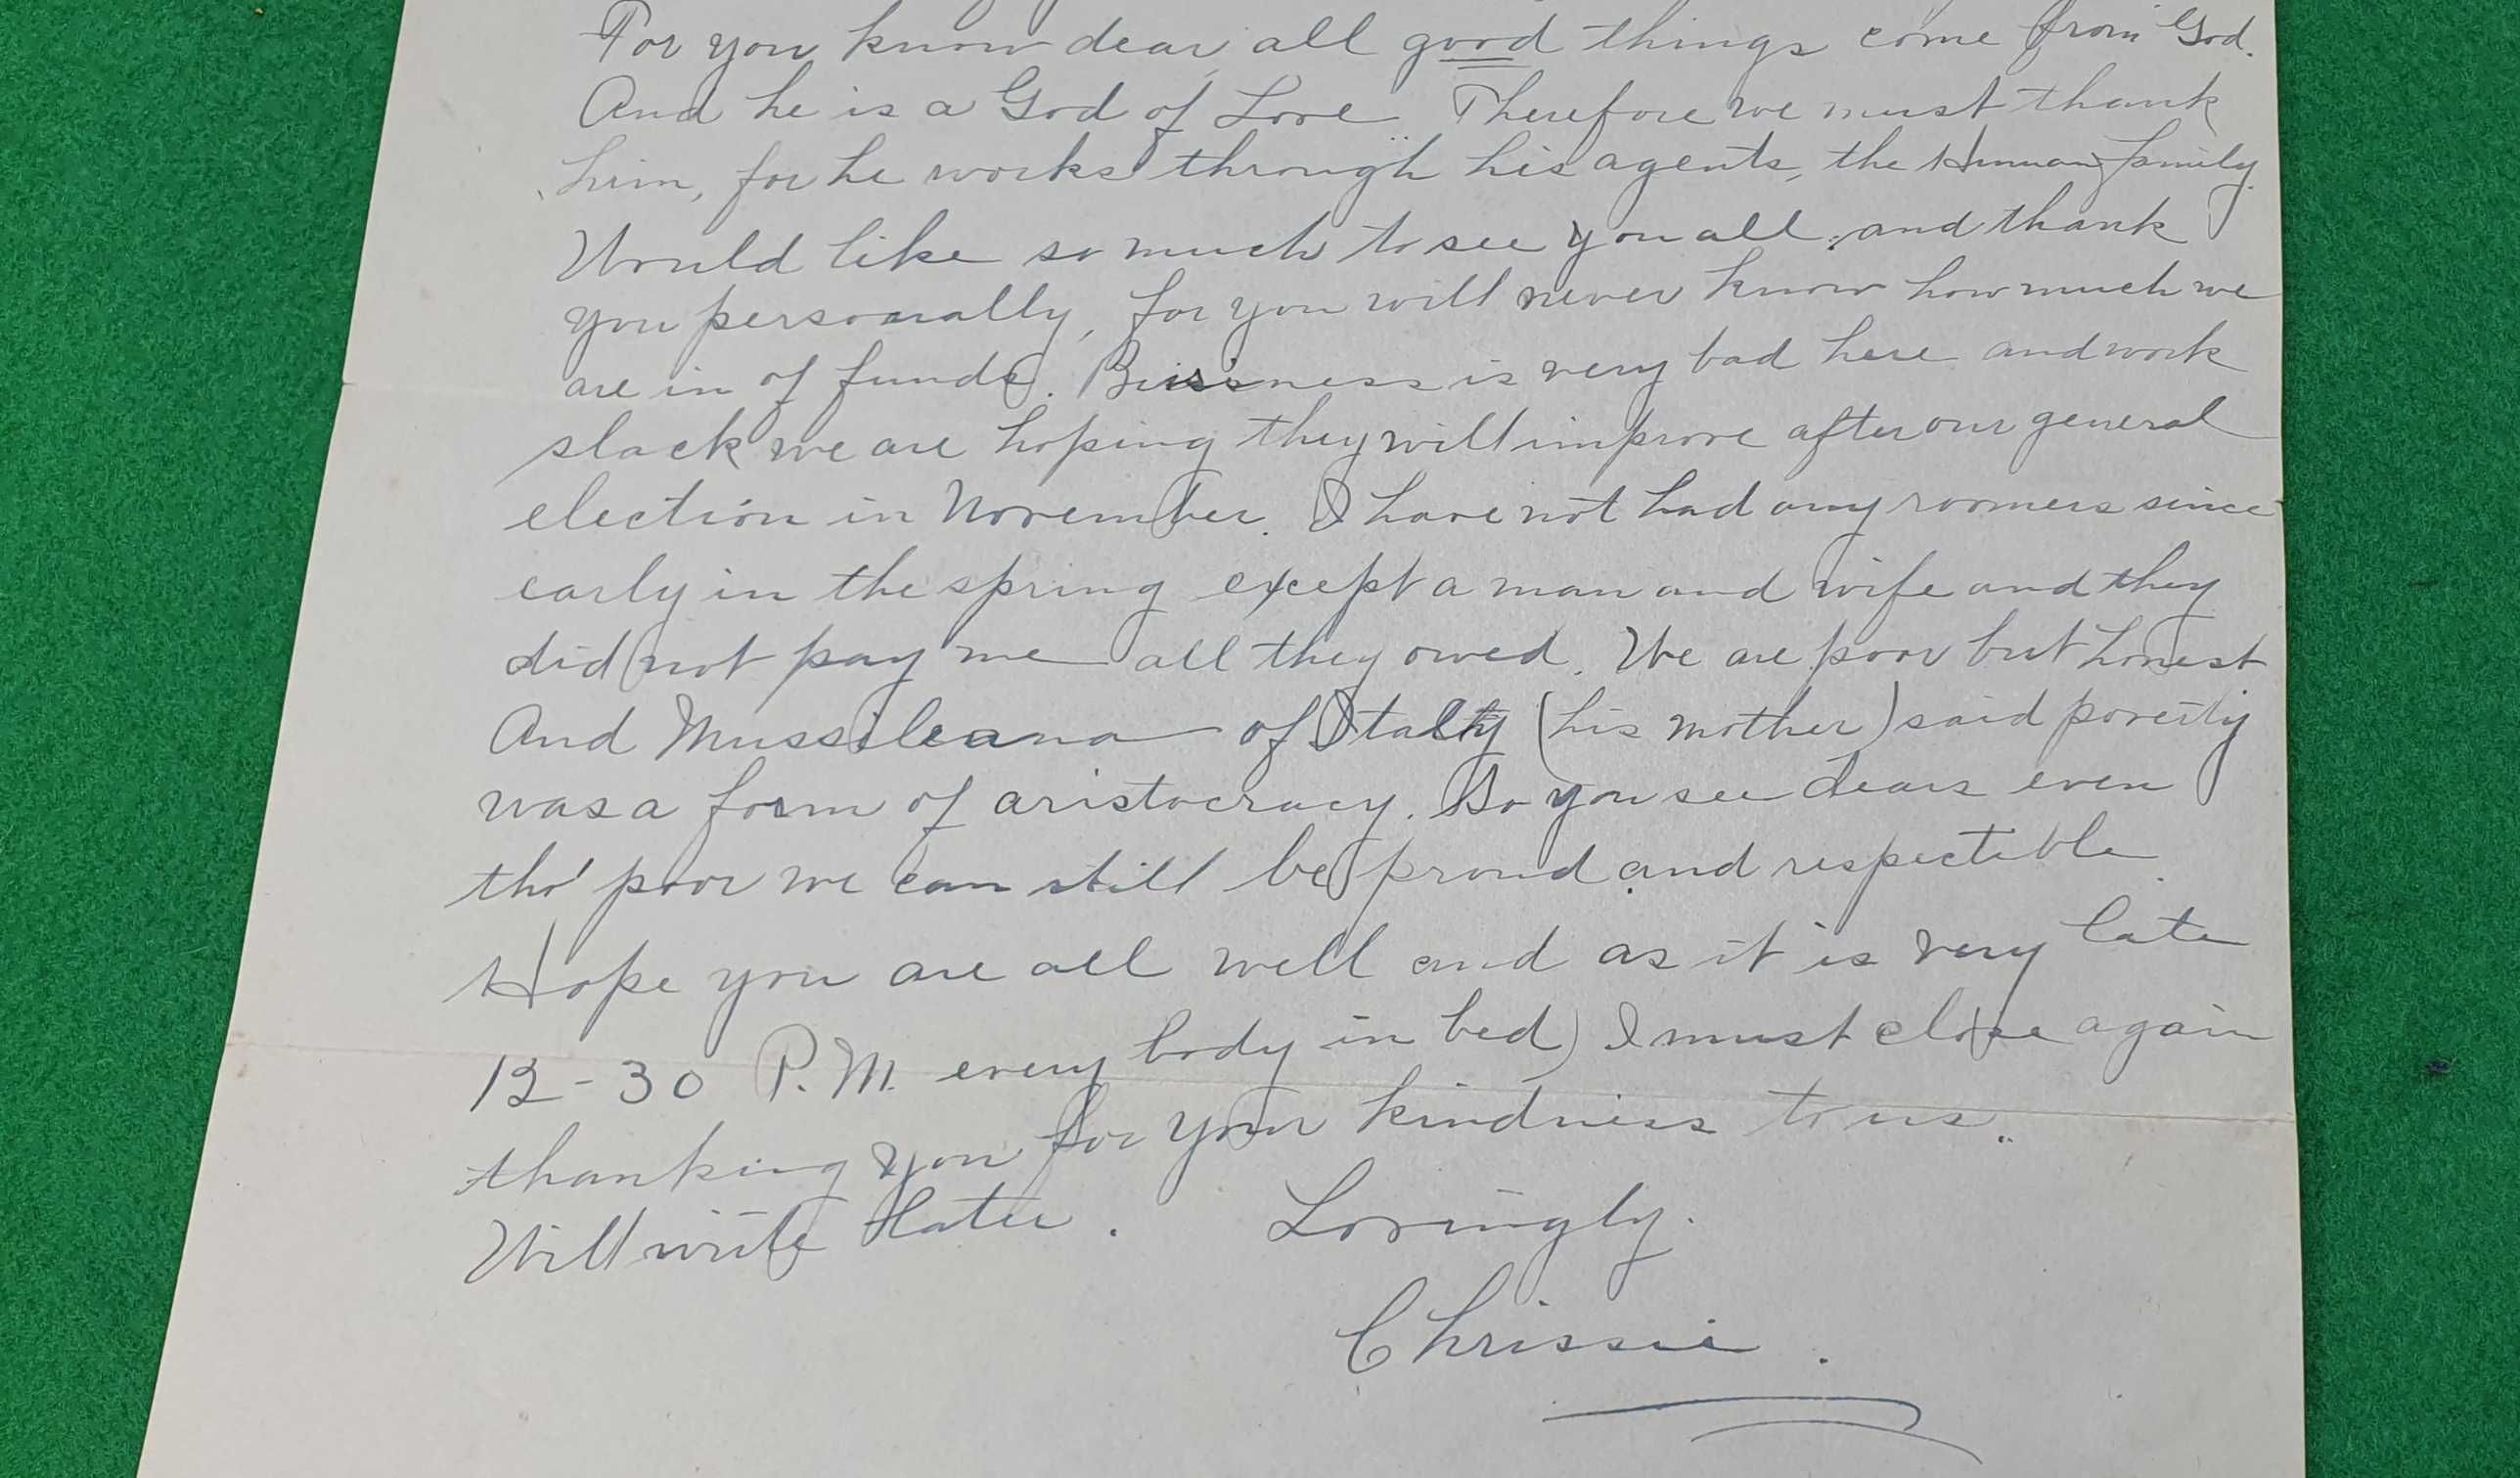 For you know dear, all good things come from God.
And he is a God of Love Therefore we must thank
him, for he works through his agents, the Human family
Would like so much to see you all, and thank
you personally, for you will never know how much we
are in of funds. Bussiness is very bad here and work
slack we are hoping they will improve after our general
election in November. I have not had any roomers since
early in the spring except a man and wife and they
did not pay me all they owed. We are poor but honest
And Mussileana of Italty (his mother) said poverity
was a form of aristocracy. So you see dears even
tho' poor we can still be proud and respectible.
Hope you are all well and as it is very late
12-30 P.M. every body in bed) I must close again
thanking you for your kindness to us.
Will write later. Lovingly.
Chrissie.